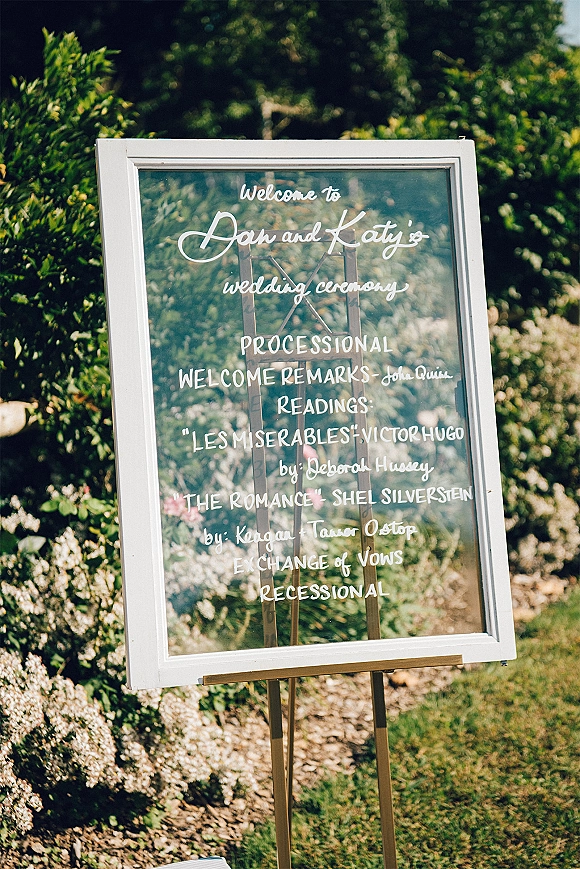 Welcome to
Dan and Katy's
wedding ceremony
PROCESSIONAL
WELCOME REMARKS - John Quinn
READINGS:
"LES MISERABLES" - VICTOR HUGO
by: Deborah Hussey
"THE ROMANCE" - SHEL SILVERSTEIN
by: Keagan + Tanner Ostop
EXCHANGE of VOWS
RECESSIONAL